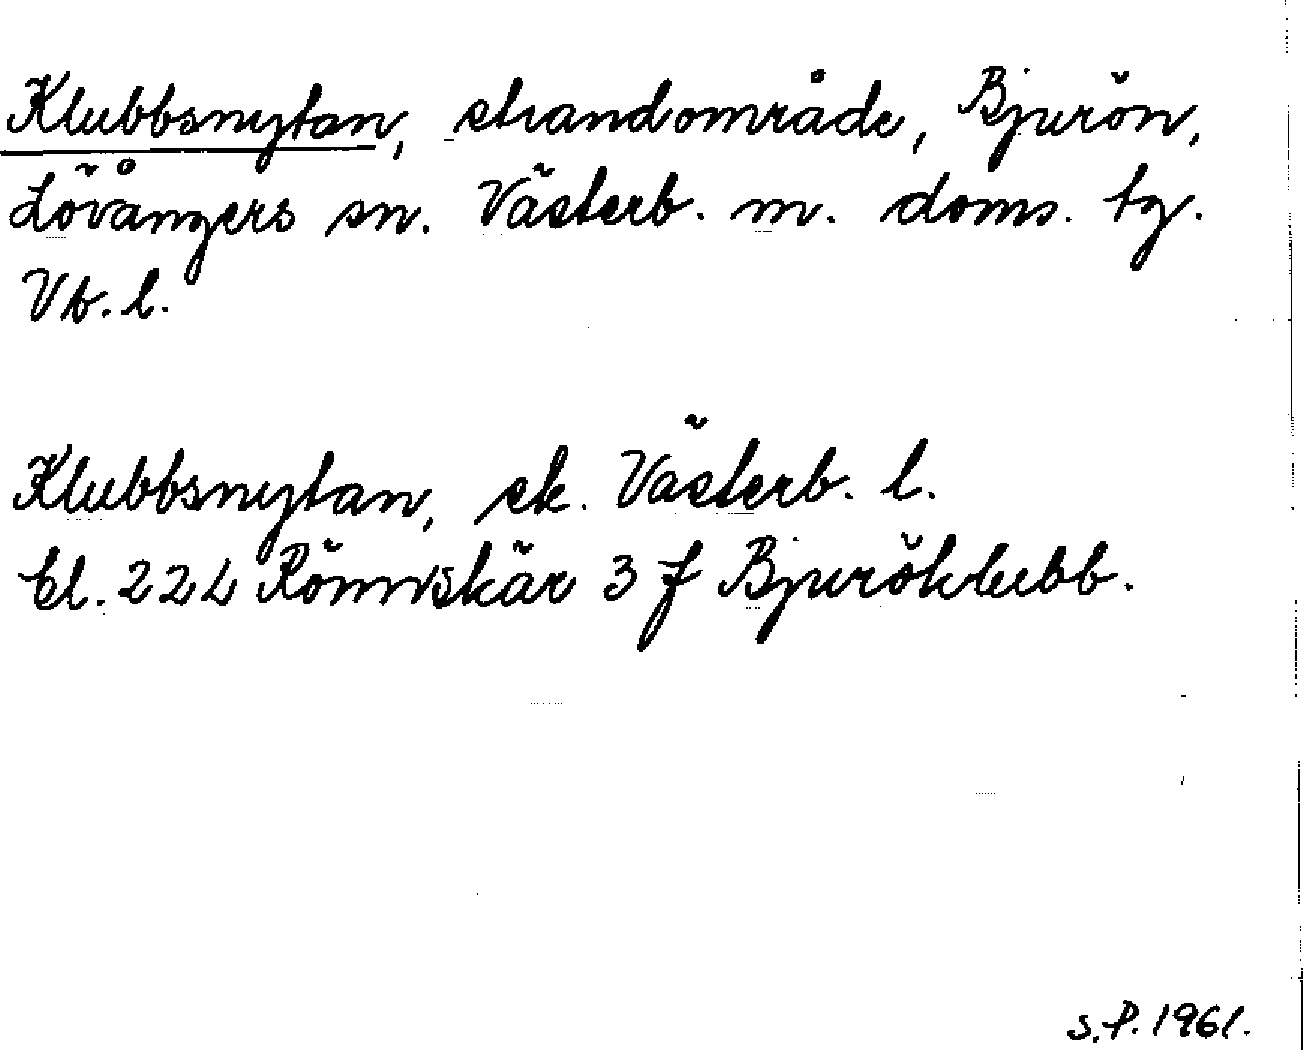 Klubbsnytan, strandområde, Bjurön,
Lövångers sn. Västerb. m. doms. tg.
Vb. l.
Klubbsnytan, sk. Västerb. l.
El. 22L Rönnskär 3 f Bjuröklubb.
S.P. 1961.